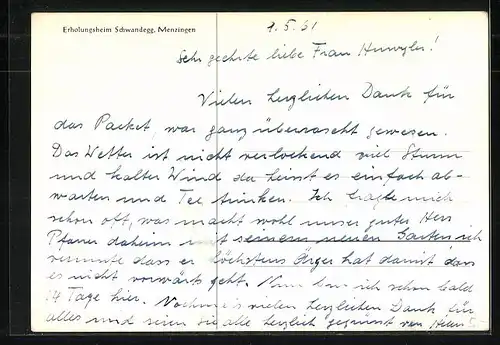 Erholungsheim Schwandegg, Menzingen
9.5.61
Sehr geehrte liebe Frau
Vielen herzlichen Dank für
das Packet, war ganz überrascht gewesen.
Das Wetter ist nicht verlockend viel Sturm
und kalter Wind da heisst es einfach ab-
warten und Tee trinken. Ich fragte mich
schon oft, was macht wohl unser guter Herr
Pfarrer daheim mit seinem neuen Garten, ich
vermute dass er höchstens Ärger hat damit, dass
es nicht vorwärts geht. Nun bin ich schon bald
14 Tage hier. Nochmals vielen herzlichen Dank für
alles und seien Sie alle herzlich gegrüsst von